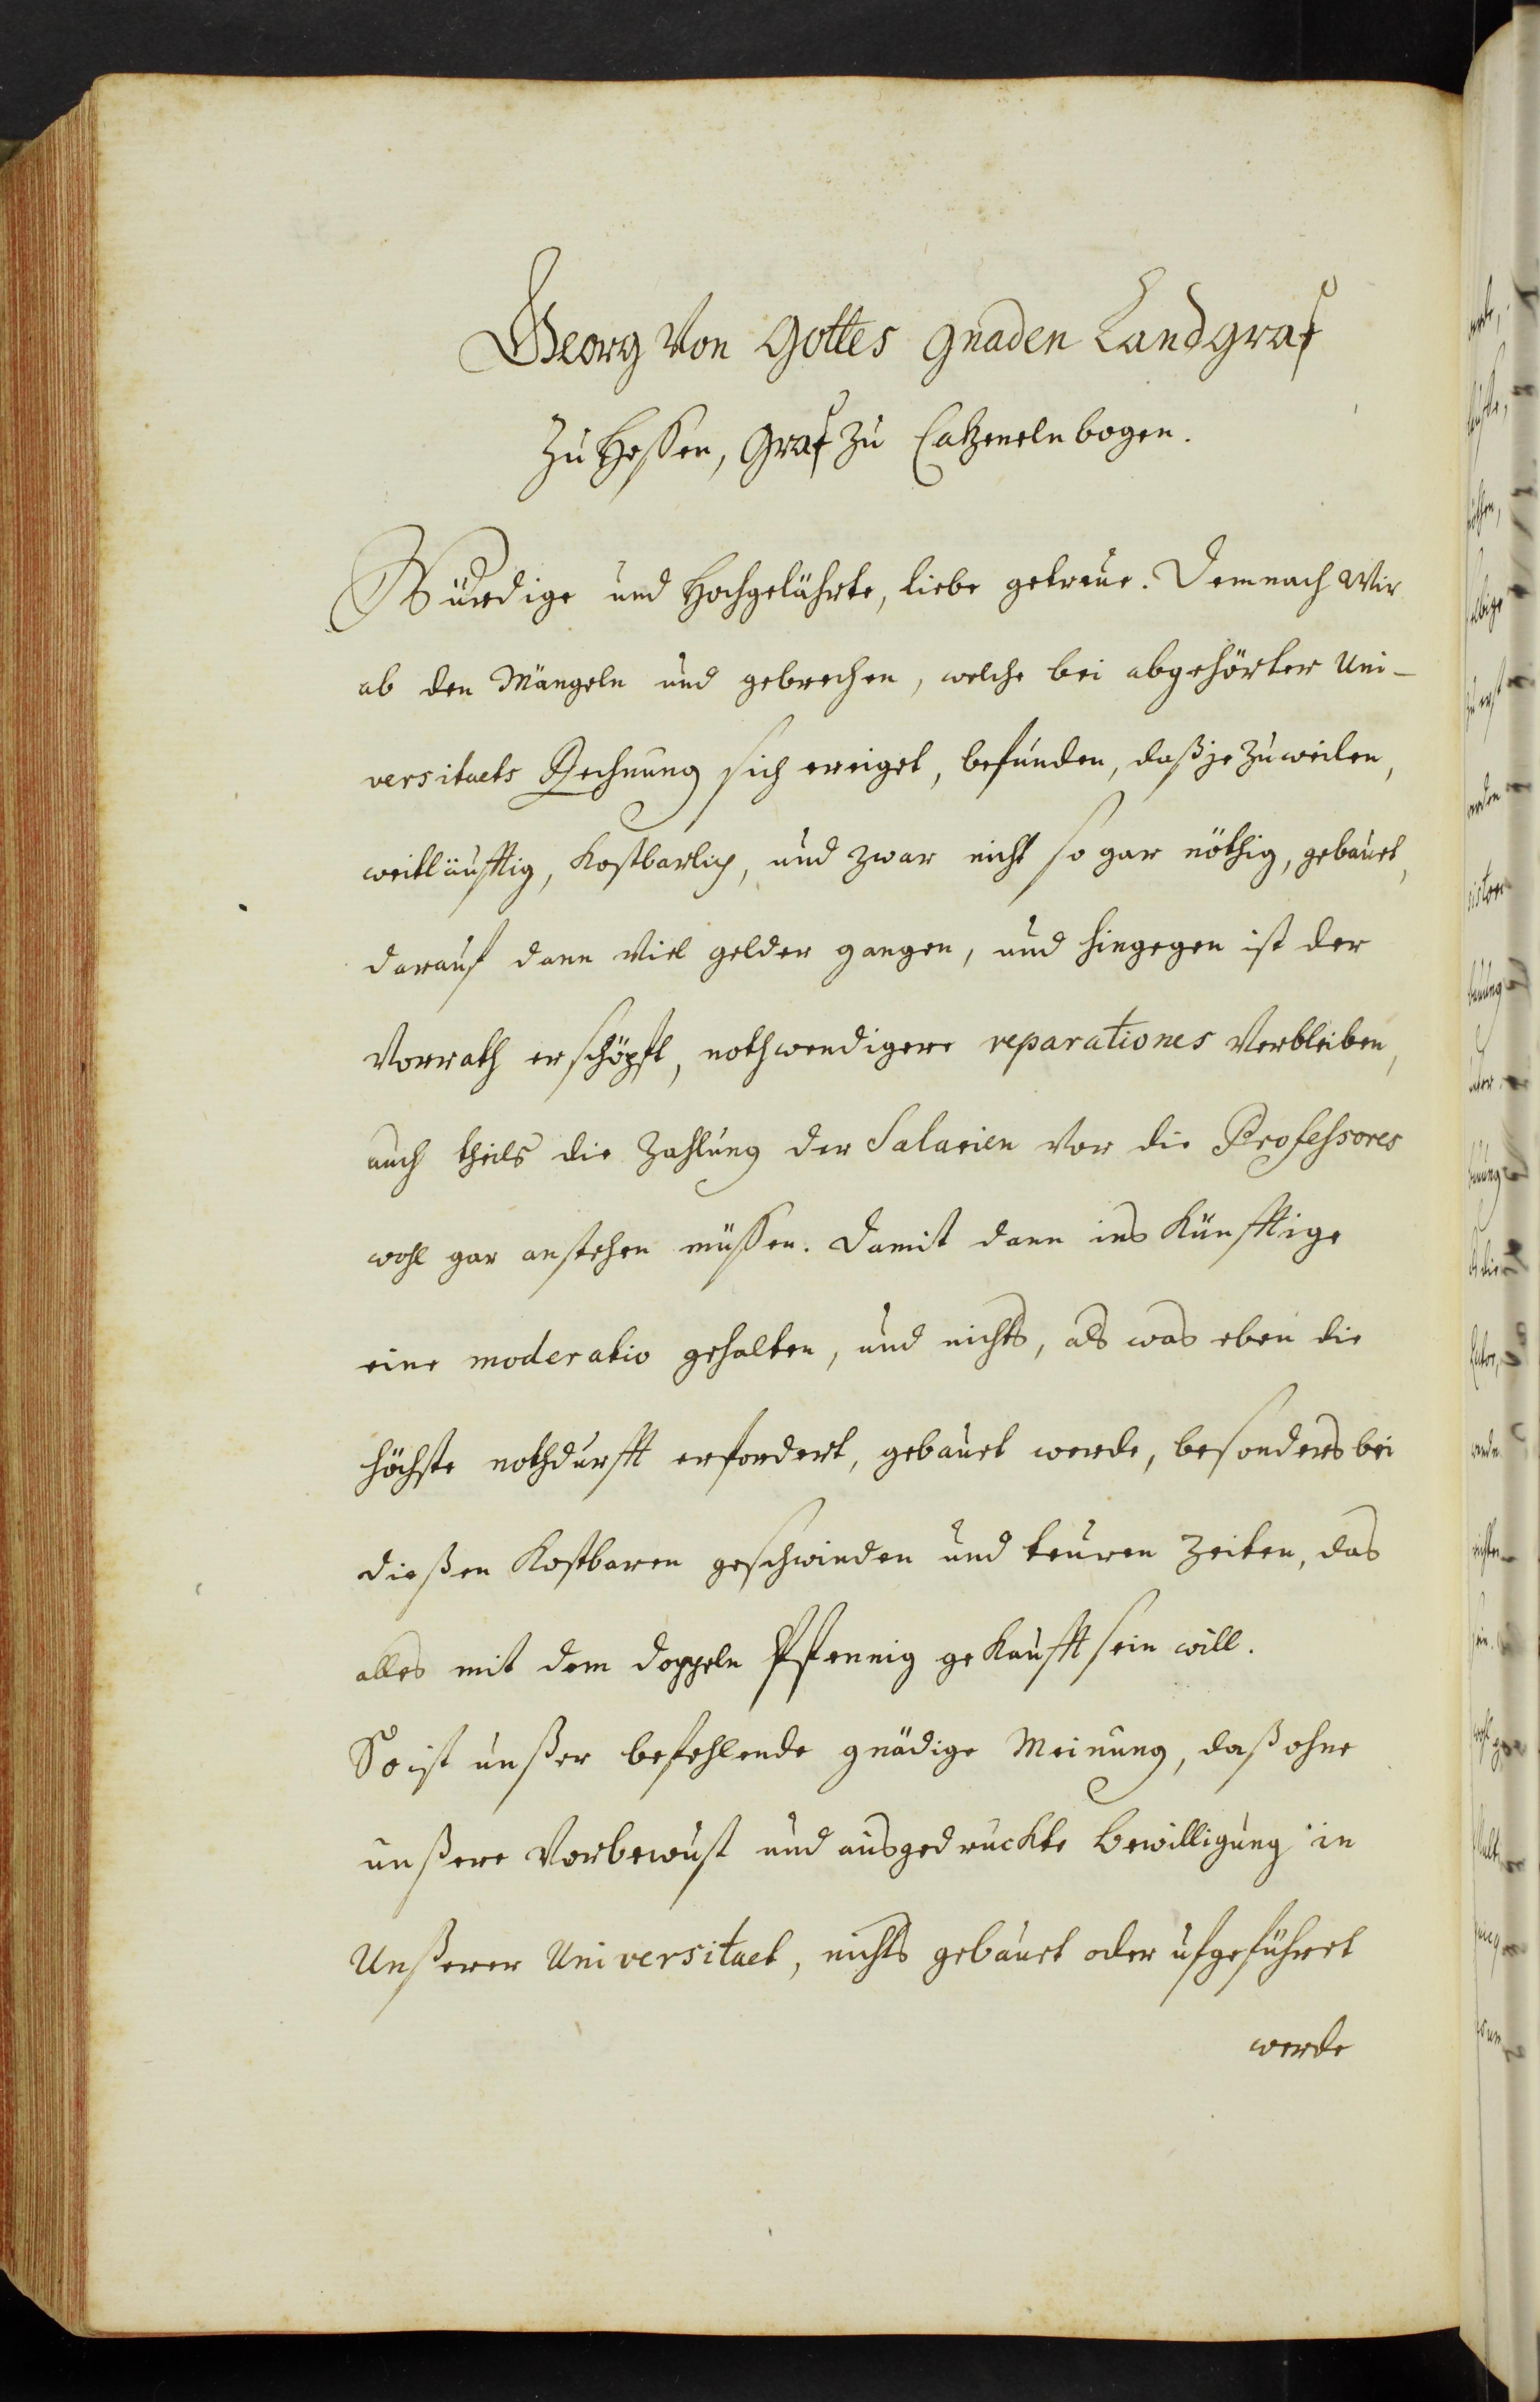 Georg Von Gottes Gnaden Landgraf
Zu Hessen, Graf zu Catzenelnbogen.
Würdige und Hochgelährte, liebe getreue. Demnach Wir
ab den Mängeln und gebrechen, welche bei abgehörter Uni-
versitaets Rechnung sich ereiget, befunden, daß je zuweilen,
weitläufftig, Kostbarlich, und zwar nicht so gar nöthig, gebauet,
darauf dann viel gelder gangen, und hingegen ist der
Vorrath erschöpft, nothwendigere reparationes Verbleiben,
auch theils die Zahlung der Salarien vor die Professores
wohl gar anstehen müssen. Damit dann ins Künfftige
eine moderatio gehalten, und nichts, als was eben die
höchste nothdurfft erfordert, gebauet werde, besonders bei
dießen Kostbaren geschwinden und teuren Zeiten, das
alles mit dem doppeln Pfennig gekaufft sein will.
So ist unßer befehlende gnädige Meinung, daß ohne
unßere Vorbewust und ausgedruckte Bewilligung in
Unßerer Universitaet, nichts gebauet oder ufgeführet
werde